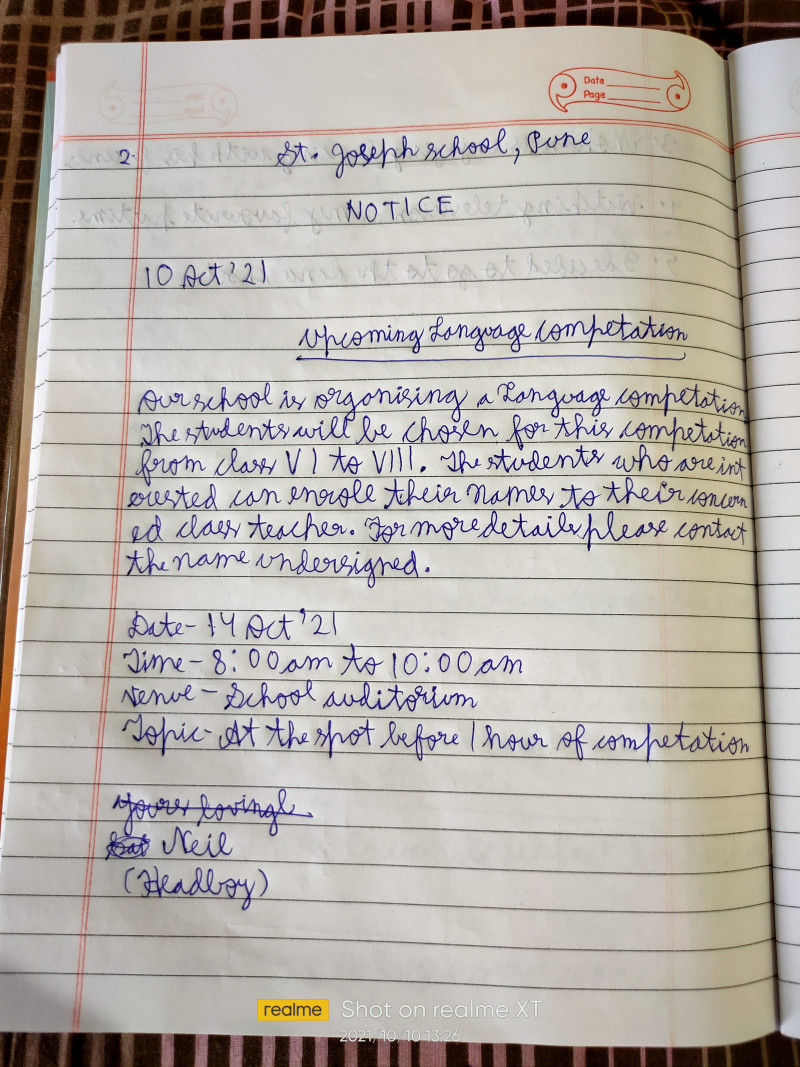 Date
Page
2.
St. Joseph school, Pune
NOTICE
10 Oct '21
Upcoming Language competation
Our school is organising a Language competation
The students will be chosen for this competation
from class VI to VIII. The students who are int
erested can enrole their names to their concern
ed class teacher. For more details please contact
the name undersigned.
Date- 14 Oct '21
Time - 8:00am to 10:00am
Venue - School auditorium
Topic- At the spot before 1 hour of competation
Yours lovingl
Neil
(Headboy)
realme Shot on realme XT
2021/10/10 13:26